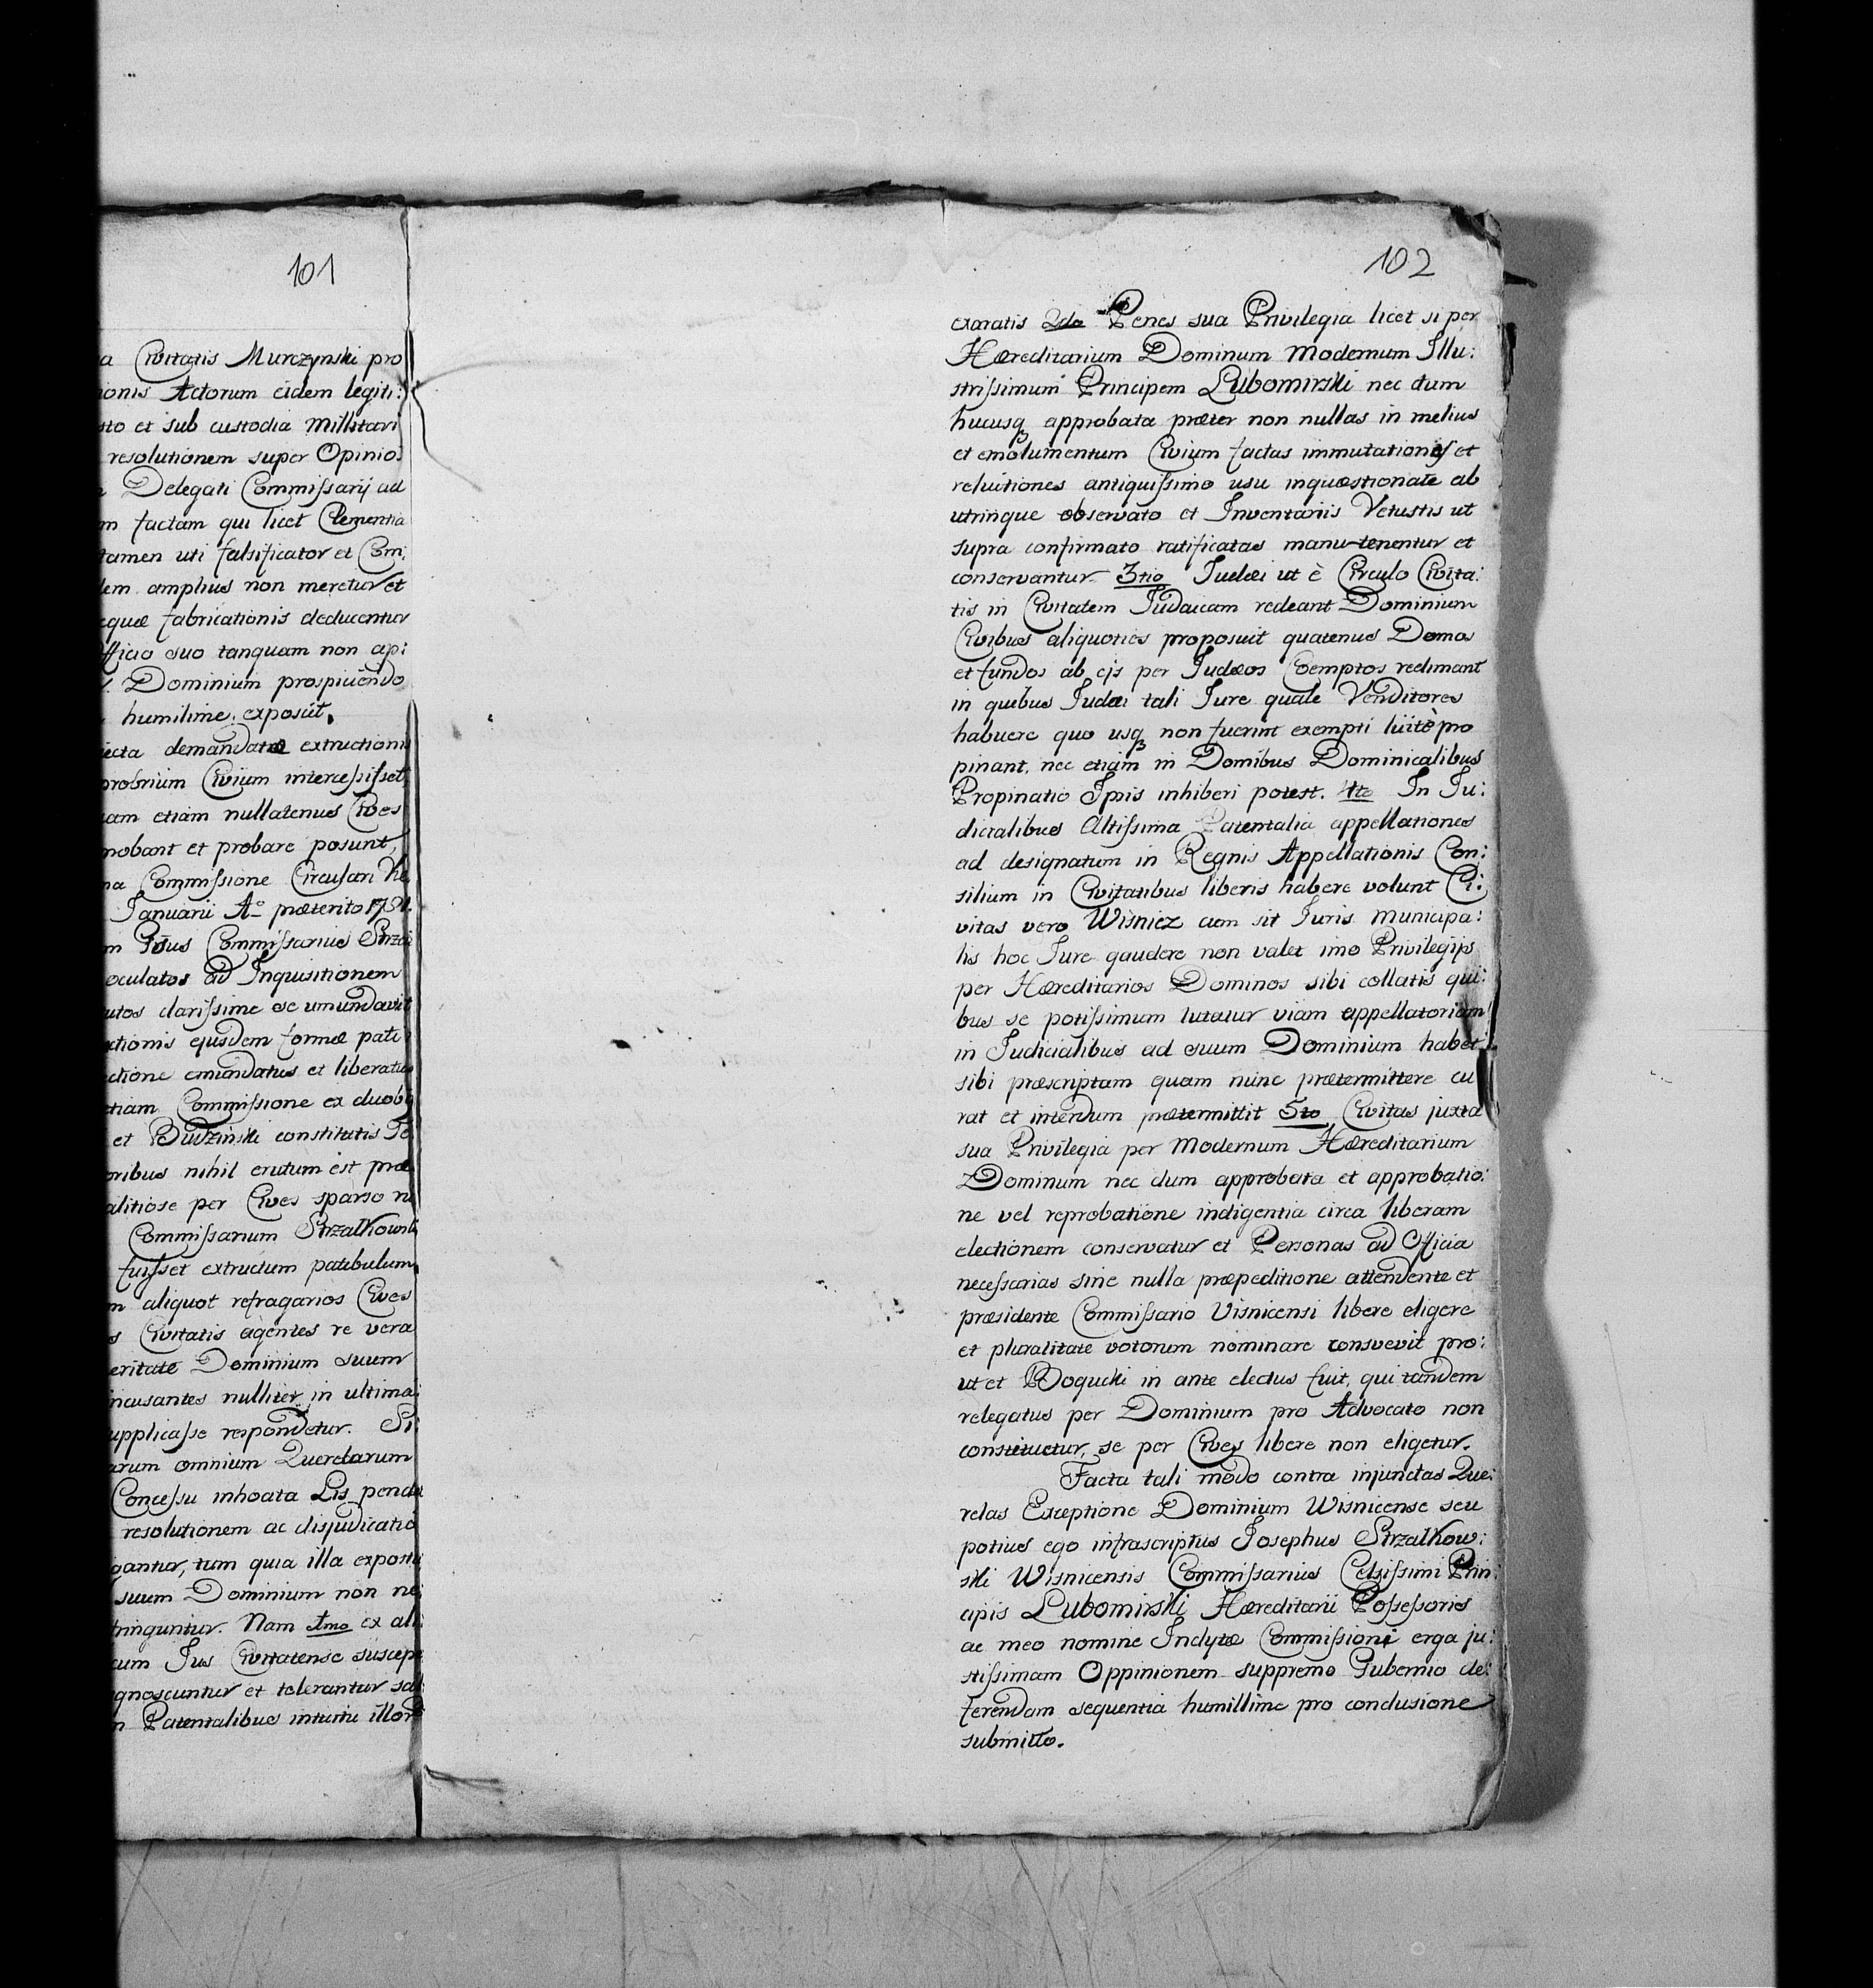 101
a Civitatis Murczynski pro
ionis Actorum eidem legiti:
sto et sub custodia Millitari
resolutionem super Opinio:
Delegati Commissarij ad
m factam qui licet Clementia
tamen uti falsificator et Com:
dem amplius non meretur et
eque fabricationis deducentur
fficio suo tanquam non ap:
Dominium prospiciendo
humilime exposuit.
iecta demandatæ extructionis
probrium Civium intercessisset,
uam etiam nullatenus Cives
nobant et probare posunt,
na Commissione Circulari
Januarii Aō præterito 1784.
m Commissarius Strzał
oculatos ad Inquisitionem
utos clarissime se emundavit
ctionis ejusdem formæ pati
ctione emundatus et liberatus
etiam Commissione ex duobq
et Budzinski constitutis
oribus nihil erutum est præ
alitiose per Cives sparso
Commissarium Strzalkowski
fuisset extructum patibulum,
m aliquot refragarios Cives
s Civitatis agentes re vera
eritate Dominium suum
incusantes nulliter in ultima:
upplicasse respondetur. Si:
arum omnium Querelarum
Concessu inhoata Lis pende
resolutionem ac disjudicatio
gantur, tum quia illa expositi
suum Dominium non ne
tringuntur. Nam 1mo ex ali
cum Jus Civitatense suscepe
gnoscuntur et tolerantur sal
n Patentalibus intuitu illor
102
exaratis 2do Penes sua Privilegia licet si per
Hæreditarium Dominum Modernum Illu:
strissimum Principem Lubomirski nec dum
hucusq approbata præter non nullas in melius
et emolumentum Civium factas immutationes et
reluitiones antiquissimo usu inquæstionate ab
utrinque observato et Inventariis Vetustis ut
supra confirmato ratificatas manu-tenentur et
conservantur 3tio Judæi ut è Circulo Civita:
tis in Civitatem Judaicam redeant Dominium
Civibus aliquoties proposuit quatenus Domos
et fundos ab ejs per Judæos Coemptos redimant
in quibus Judæi tali Jure quale Venditores
habuere quo usq non fuerint exempti luitè pro
pinant, nec etiam in Domibus Dominicalibus
Propinatio Ipsis inhiberi potest. 4to In Ju:
dicialibus Altissima Patentalia appellationes
ad designatum in Regnis Appellationis Con:
silium in Civitatibus liberis habere volunt Ci:
vitas vero Wisnicz cum sit Juris Municipa:
lis hoc Jure gaudere non valet imo Privilegijs
per Hæreditarios Dominos sibi collatis qui:
bus se potissimum tutatur viam appellatoriam
in Judicialibus ad suum Dominium habet
sibi præscriptam quam nunc prætermittere cu
rat et interdum prætermittit 5to Civitas juxta
sua Privilegia per Modernum Hæreditarium
Dominum nec dum approbata et approbatio:
ne vel reprobatione indigentia circa liberam
electionem conservatur et Personas ad Officia
necessarias sine nulla præpeditione attendente et
præsidente Commissario Visnicensi libere eligere
et pluralitate votorum nominare consuevit pro:
ut et Bogucki in ante electus fuit, qui tandem
relegatus per Dominium pro Advocato non
constituetur, se per Cives libere non eligetur.
Facta tali modo contra injunctas Que:
relas Exceptione Dominium Wisnicense seu
potius ego infrascriptus Josephus Strzalkow:
ski Wisnicensis Commissarius Celsissimi Prin:
cipis Lubomirski Hæreditarii Possessoris
ac meo nomine Inclytæ Commissioni erga ju:
stissimam Oppinionem suppremo Gubernio de:
ferendam sequentia humillime pro conclusione
submitto.